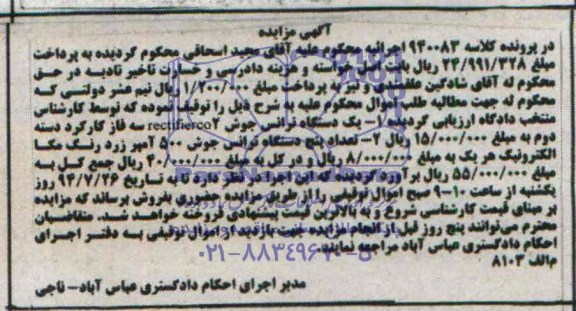 آگهی مزایده
در پرونده کلاسه ۹۴۰۰۸۳ اجرائیه محکوم علیه آقای مجید اسحاقی محکوم گردیده به پرداخت
مبلغ ۲۴/۹۹۱/۳۲۸ ریال بابت اصل خواسته و هزینه دادرسی و خسارت تاخیر تادیه در حق
محکوم له آقای شادگین و نیز به پرداخت مبلغ ۱/۲۰۰/۰۰۰ ریال نیم عشر دولتی که
محکوم له جهت مطالبه طلب اموال محکوم علیه به شرح ذیل را توقیف نموده که توسط کارشناس
منتخب دادگاه ارزیابی گردیده ۱- یک دستگاه ترانس جوش rectifierco۲ سه فاز کارکرد دسته
دوم به مبلغ ۱۵/۰۰۰/۰۰۰ ریال ۲- تعداد پنج دستگاه ترانس جوش ۵۰۰ آمپر زرد رنگ مکا
الکترونیک هر یک به مبلغ ۸/۰۰۰/۰۰۰ ریال و در کل به مبلغ ۴۰/۰۰۰/۰۰۰ ریال جمع کل به
مبلغ ۵۵/۰۰۰/۰۰۰ ریال برآورد گردیده که این اجرا در نظر دارد تا به تاریخ ۹۴/۷/۲۶ روز
یکشنبه از ساعت ۱۰-۹ صبح اموال توقیفی را از طریق مزایده حضوری بفروش برساند که مزایده
بر مبنای قیمت کارشناسی شروع و به بالاترین قیمت پیشنهادی فروخته خواهد شد. متقاضیان
محترم می‌توانند پنج روز قبل از انجام مزایده جهت بازدید از اموال توقیفی به دفتر اجرای
احکام دادگستری عباس آباد مراجعه نمایند.
۰۲۱-۸۸۳۴۹۶۷۰-۵
م/الف ۸۱۰۳
مدیر اجرای احکام دادگستری عباس آباد- ناجی